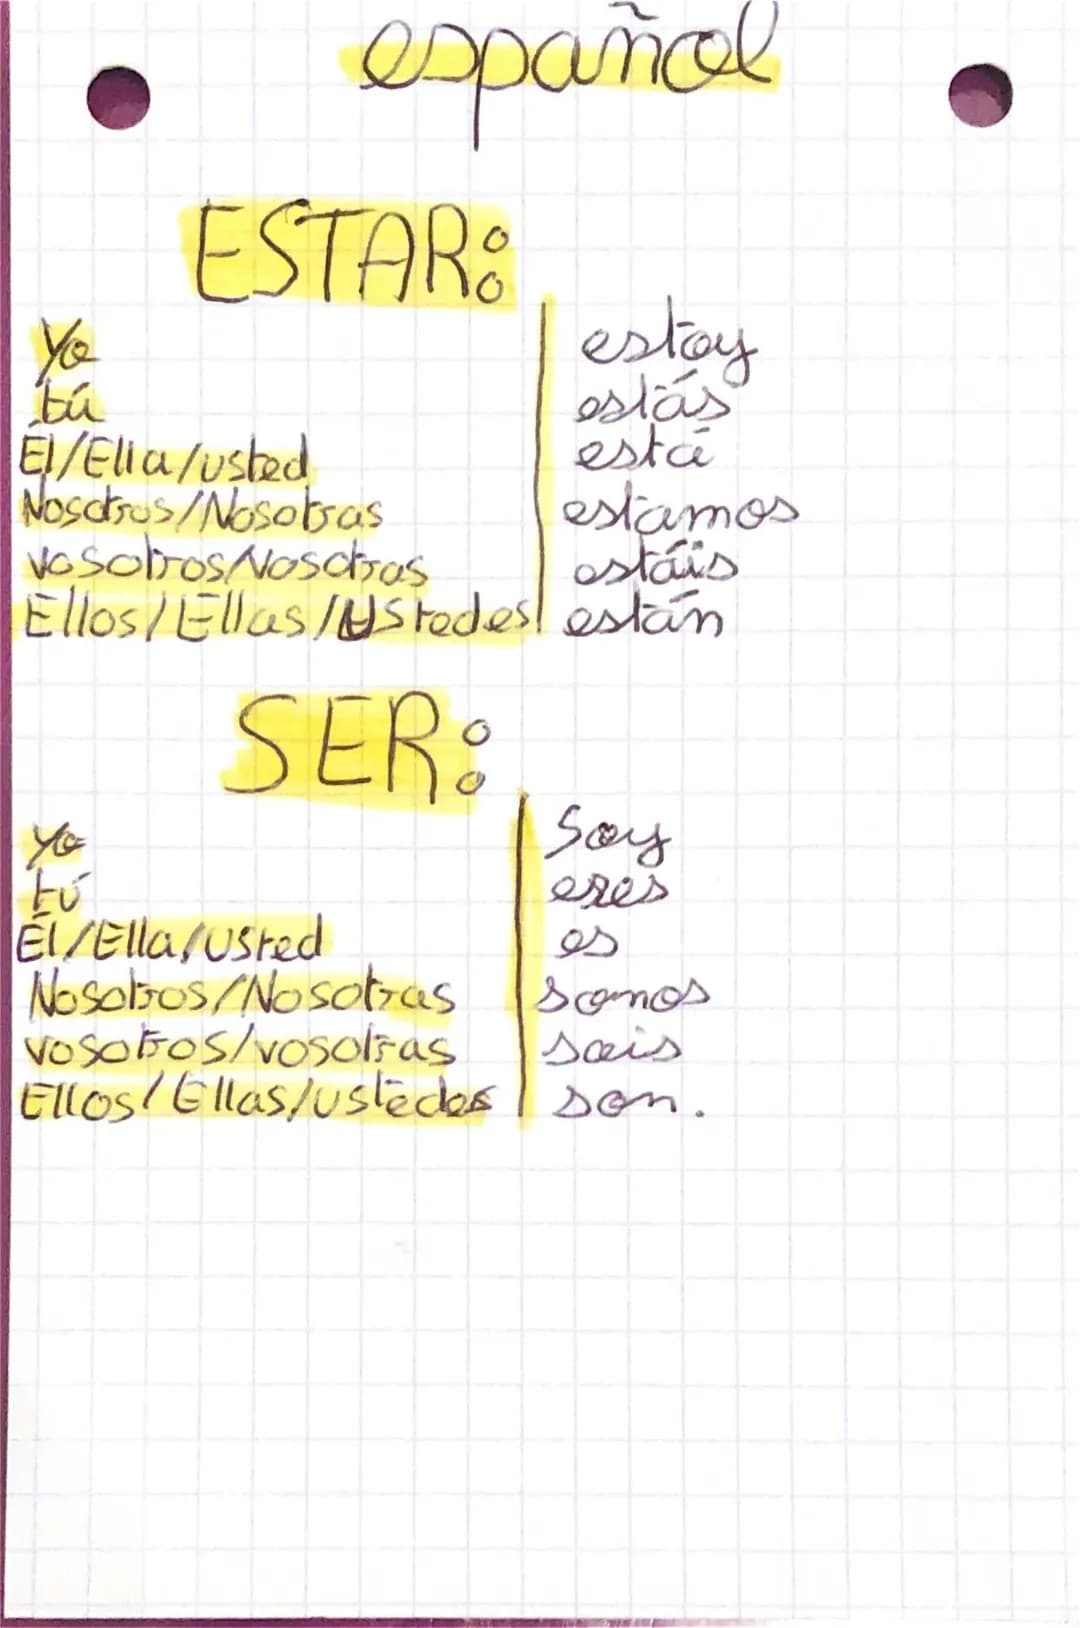 español
ESTAR:
Yo estoy
tú estás
Él/Ella/usted está
Nosotros/Nosotras estamos
vosotros/Vosotras estáis
Ellos/Ellas/Ustedes están
SER:
yo Soy
tú eres
Él/Ella/usted es
Nosotros/Nosotras somos
vosotros/vosotras sois
Ellos/Ellas/ustedes son.